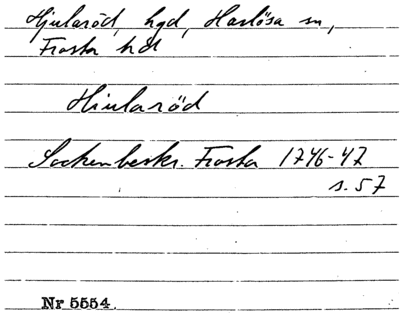 Hjularöd, hgd, Harlösa sn,
Frosta hd
Hiularöd
Sockenbeskr. Frosta 1746-47
s. 57
Nr 5554.